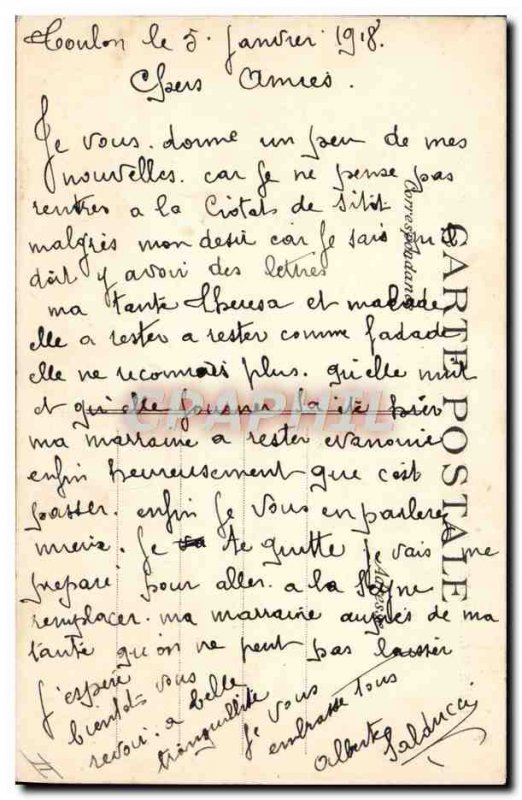 Toulon le 5. Janvier 1918.
Chers Amies.
Je vous. donne un peu de mes
nouvelles. car Je ne pense pas
rentrer a la Ciotat de Sitot
malgrés mon desir car Je sais
doit y avoir des lettres
ma tante Theresa et malade
elle a rester a rester comme fadade
elle ne reconnais plus. qu'elle nuit
et qu'elle Journer la été hier
ma marraine a rester evanouie
enfin heureusement que c'est
passer. enfin Je vous en parlerer
mieux. Je te quitte Je vais me
preparé pour aller. a la Seyne
remplacer. ma marraine auprés de ma
tante qu'on ne peut pas laisser
J'espère
bientot vous
revoir. a belle
tranquillité
Je vous
embrasse tous
Alberte
Salducci
II
CARTE POSTALE
Correspondance
Adresse
CARAPHIL